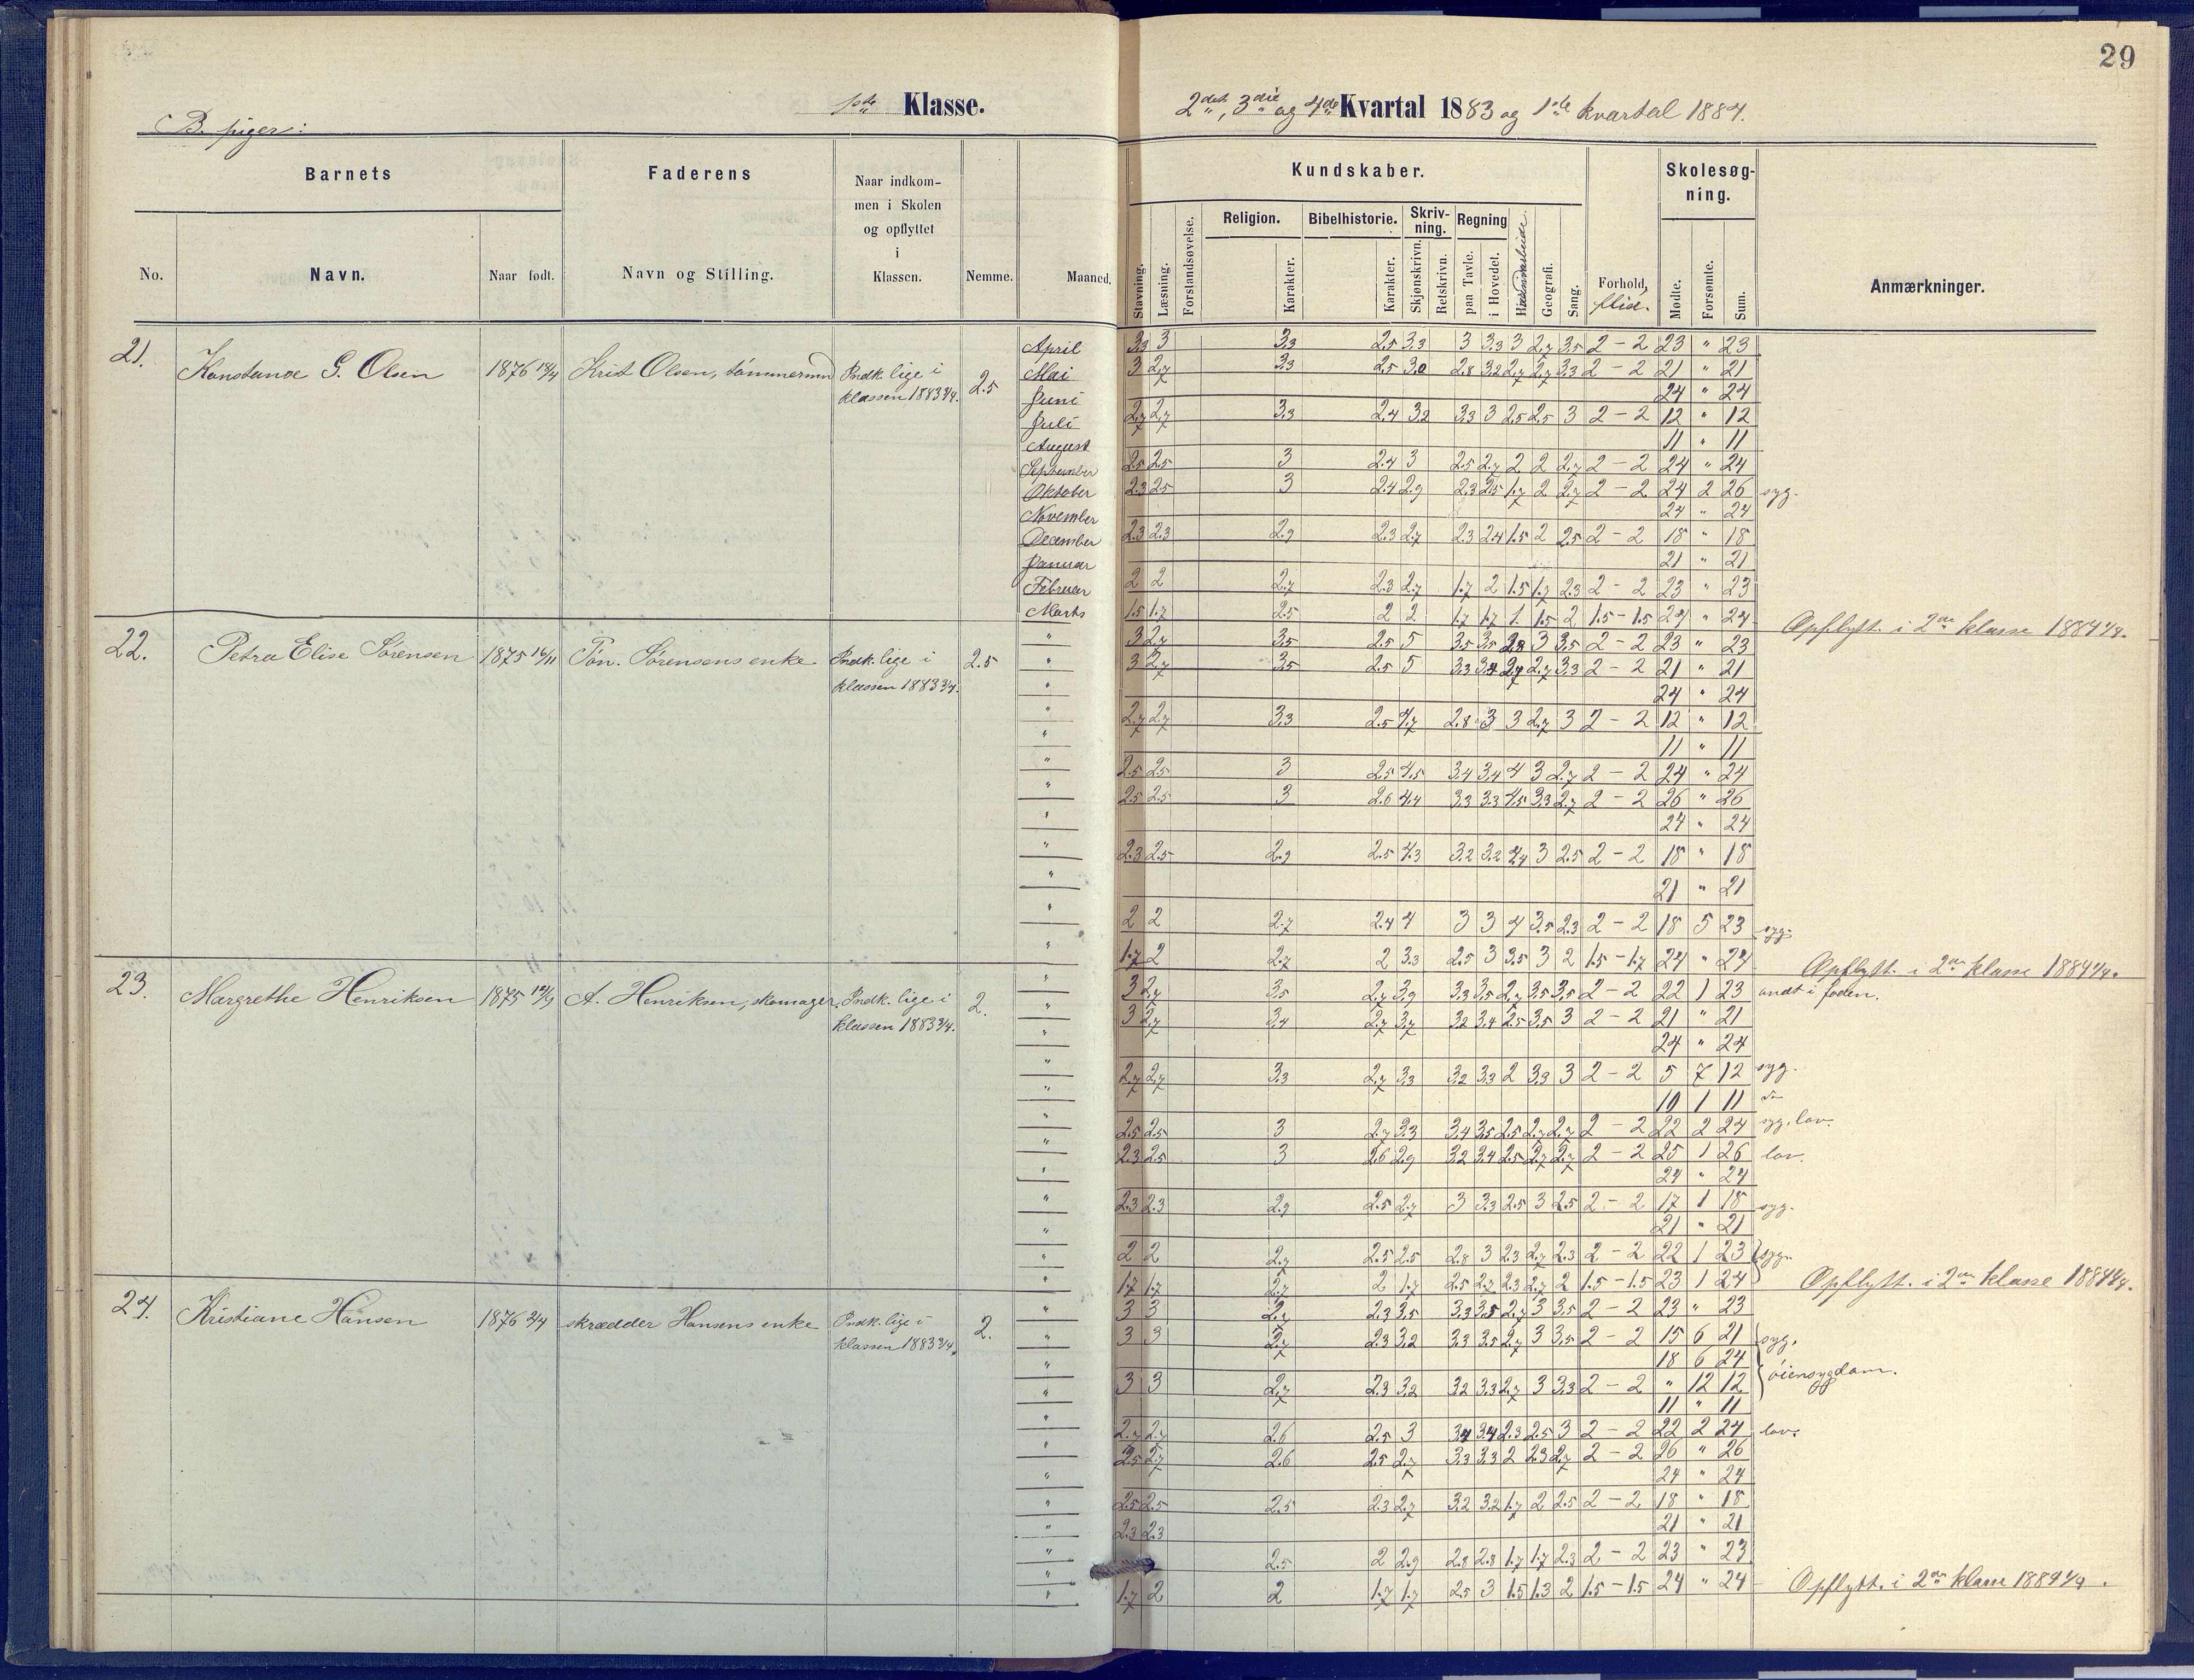 29
1ste Klasse.
2det, 3die og 4de Kvartal 1883 og 1ste kvartal 1884.
B. piger:
Barnets
Faderens
Naar indkom-
men i Skolen
og opflyttet
i
Klassen.
No.
Navn.
Naar født.
Navn og Stilling.
Nemme.
Maaned.
Kundskaber.
Skolesøg-
ning.
Religion.
Bibelhistorie.
Skriv-
ning.
Regning
Stavning.
Læsning.
Forstandsøvelse.
Karakter.
Karakter.
Skjønskrivn.
Retskrivn.
paa Tavle.
i Hovedet.
Geografi.
Sang.
Forhold,
flid.
Mødte.
Forsømte.
Sum.
Anmærkninger.
21. Konstance G. Olsen 1876 Krist Olsen, tømmermd Indk. lige i
klassen 1883 3/4. 2.5
April 3.3 3 3.3 2.5 3.3 3 3.3 3 2.7 3.5 2 – 2 23 " 23
Mai 3 2.7 3.3 2.5 3.0 2.8 3.2 2.7 2.7 3.3 2 – 2 21 " 21
Juni 24 " 24
Juli 2.7 2.7 3.3 2.4 3.2 3.3 3 2.5 2.5 3 2 – 2 12 " 12
August 11 " 11
September 2.5 2.5 3 2.4 3 2.5 2.7 2 2 2.7 2 – 2 24 " 24
Oktober 2.3 2.5 3 2.4 2.9 2.3 2.5 1.7 2 2.7 2 – 2 24 2 26 syg.
November 24 " 24
December 2.3 2.3 2.9 2.3 2.7 2.3 2.4 1.5 2 2.5 2 – 2 18 " 18
Januar 21 " 21
Februar 2 2 2.7 2.3 2.7 1.7 2 1.5 1.7 2.3 2 – 2 23 " 23
Marts 1.5 1.7 2.5 2 2 1.7 1.7 1. 1.5 2 1.5 – 1.5 24 " 24 Opflytt. i 2den klasse 1884 1/4.
22. Petra Elise Sørensen 1875 16/11 Tøn. Sørensens enke Indk. lige i
klassen 1883 3/4. 2.5
" 3 2.7 3.5 2.5 5 3.5 3.5 2.8 3 3.5 2 – 2 23 " 23
" 3 2.7 3.5 2.5 5 3.3 3.4 2.7 2.7 3.3 2 – 2 21 " 21
" 24 " 24
" 2.7 2.7 3.3 2.5 4.7 2.8 3 3 2.7 3 2 – 2 12 " 12
" 11 " 11
" 2.5 2.5 3 2.5 4.5 3.4 3.4 4 3 2.7 2 – 2 24 " 24
" 2.5 2.5 3 2.6 4.4 3.3 3.3 4.5 3.3 2.7 2 – 2 26 " 26
" 24 " 24
" 2.3 2.5 2.9 2.5 4.3 3.2 3.2 4.4 3 2.5 2 – 2 18 " 18
" 21 " 21
" 2 2 2.7 2.4 4 3 3 4 3.5 2.3 2 – 2 18 5 23 syg.
" 1.7 2 2.7 2 3.3 2.5 3 3.5 3 2 1.5 – 1.7 24 " 24 Opflytt. i 2den klasse 1884 1/4.
23. Margrethe Henriksen 1875 A. Henriksen, skomager. Indk. lige i
klassen 1883 3/4. 2.
" 3 2.7 3.5 2.7 3.9 3.3 3.5 2.7 3.5 3.5 2 – 2 22 1 23 ondt i foden.
" 3 2.7 3.4 2.7 3.7 3.2 3.4 2.5 3.5 3 2 – 2 21 " 21
" 24 " 24
" 2.7 2.7 3.3 2.7 3.3 3.2 3.3 2 3.3 3 2 – 2 5 7 12 syg.
" 10 1 11
" 2.5 2.5 3 2.7 3.3 3.4 3.5 2.5 2.7 2.7 2 – 2 22 2 24 syg, lov.
" 2.3 2.5 3 2.6 2.9 3.2 3.4 2.5 2.7 2.7 2 – 2 25 1 26 lov.
" 24 " 24
" 2.3 2.3 2.9 2.5 2.7 3 3.3 2.5 3 2.5 2 – 2 17 1 18 syg.
" 21 " 21
" 2 2 2.7 2.5 2.5 2.8 3 2.3 2.7 2.3 2 – 2 22 1 23 syg.
" 1.7 1.7 2.7 2 1.7 2.5 2.7 2.3 2.7 2 1.5 – 1.5 23 1 24 Opflytt. i 2den klasse 1884 1/4.
24. Kristiane Hansen 1876 2/4 skrædder Hansens enke Indk. lige i
klassen 1883 3/4. 2.
" 3 3 2.7 2.3 3.5 3.3 3.5 2.7 3 3.5 2 – 2 23 " 23
" 3 3 2.7 2.3 3.2 3.3 3.5 2.7 3 3.5 2 – 2 15 6 21 syg.
" 18 6 24
" 3 3 2.7 2.3 3.2 3.2 3.3 2.7 3 3.3 2 – 2 " 12 12 øiensygdom.
" 11 " 11
" 2.7 2.7 2.6 2.5 3 3.4 3.4 2.3 2.5 3 2 – 2 22 2 24 lov.
" 2.5 2.7 2.6 2.5 2.7 3.3 3.3 2 2.3 2.7 2 – 2 26 " 26
" 24 " 24
" 2.5 2.5 2.5 2.3 2.7 3.2 3.2 1.7 2 2.5 2 – 2 18 " 18
" 2.3 2.3 21 " 21
" 2.5 2 2.9 2.8 2.8 1.7 1.7 2.3 2 – 2 23 " 23
" 1.7 2 2 1.7 1.7 2.5 3 1.5 1.3 2 1.5 – 1.5 24 " 24 Opflytt. i 2den klasse 1884 1/4.